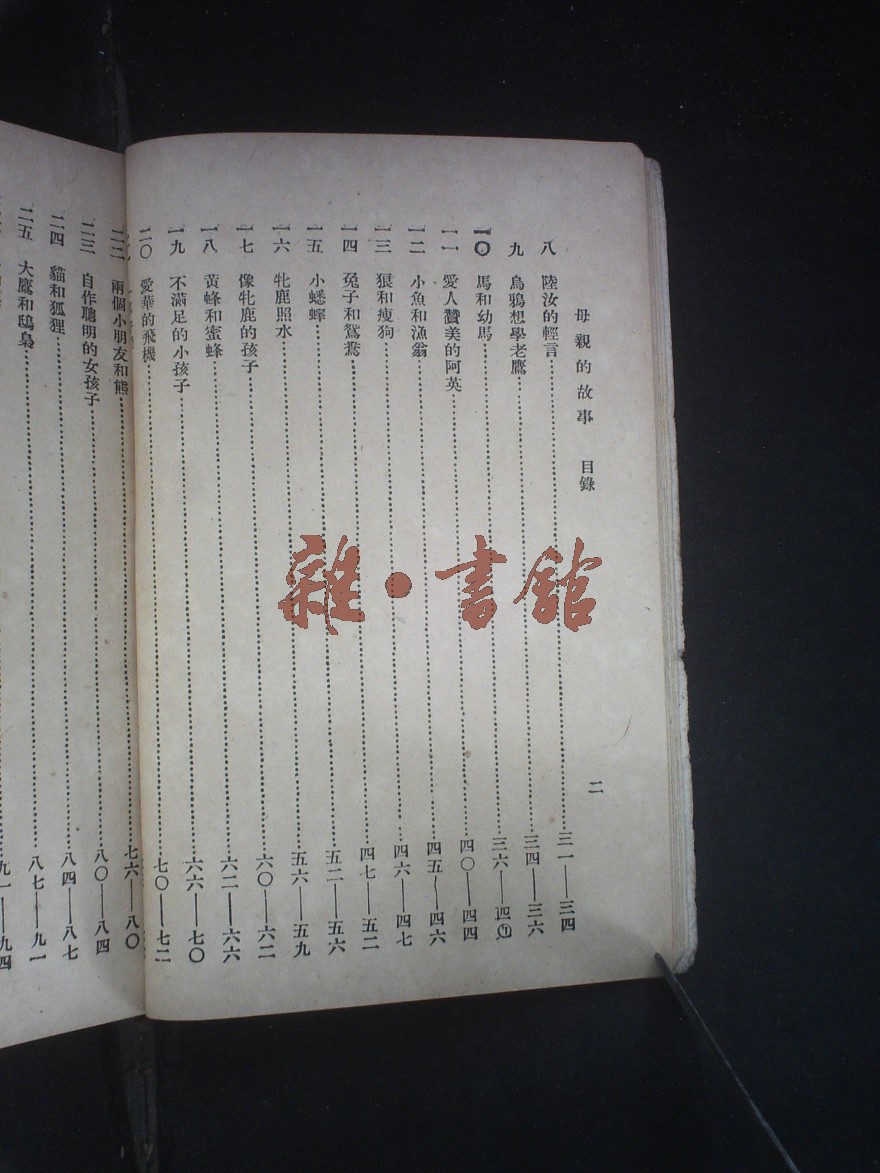 母親的故事　目錄
二
八　陸汝的輕言……三一——三四
九　烏鴉想學老鷹……三四——三六
一〇　馬和幼馬……三六——四〇
一一　愛人贊美的阿英……四〇——四四
一二　小魚和漁翁……四五——四六
一三　狼和瘦狗……四六——四七
一四　兔子和鴛鴦……四七——五二
一五　小蟋蟀……五二——五六
一六　牝鹿照水……五六——五九
一七　像牝鹿的孩子……六〇——六二
一八　黃蜂和蜜蜂……六二——六六
一九　不滿足的小孩子……六六——七〇
二〇　愛華的飛機……七〇——七二
二二　兩個小朋友和熊……七六——八〇
二三　自作聰明的女孩子……八〇——八四
二四　貓和狐狸……八四——八七
二五　大鷹和鴟梟……八七——九一
九一——九四
雜·書館